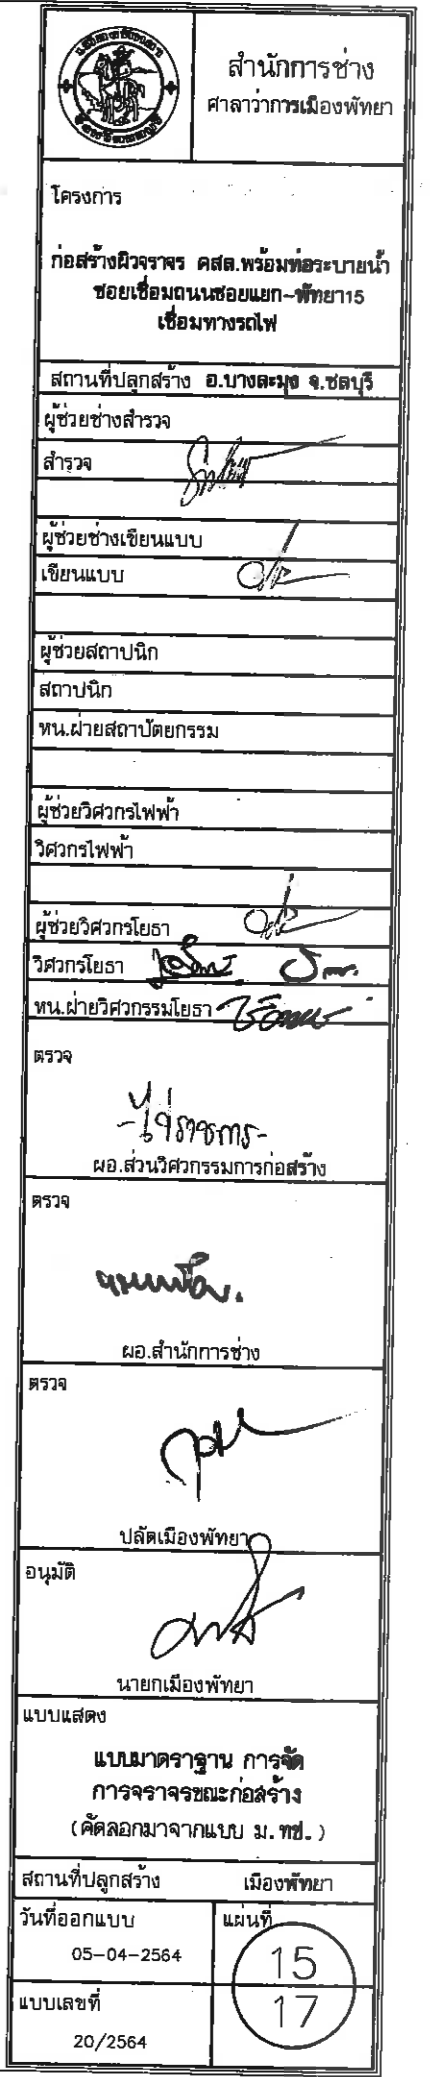 สำนักการช่าง
ศาลาว่าการเมืองพัทยา
โครงการ
ก่อสร้างผิวจราจร คสล.พร้อมท่อระบายน้ำ
ซอยเชื่อมถนนซอยแยก-พัทยา15
เชื่อมทางรถไฟ
สถานที่ปลูกสร้าง อ.บางละมุง จ.ชลบุรี
ผู้ช่วยช่างสำรวจ
สำรวจ
ผู้ช่วยช่างเขียนแบบ
เขียนแบบ
ผู้ช่วยสถาปนิก
สถาปนิก
หน.ฝ่ายสถาปัตยกรรม
ผู้ช่วยวิศวกรไฟฟ้า
วิศวกรไฟฟ้า
ผู้ช่วยวิศวกรโยธา
วิศวกรโยธา
หน.ฝ่ายวิศวกรรมโยธา
ตรวจ
-ไปราชการ-
ผอ.ส่วนวิศวกรรมการก่อสร้าง
ตรวจ
ผอ.สำนักการช่าง
ตรวจ
ปลัดเมืองพัทยา
อนุมัติ
นายกเมืองพัทยา
แบบแสดง
แบบมาตราฐาน การจัด
การจราจรขณะก่อสร้าง
(คัดลอกมาจากแบบ ม.ทช.)
สถานที่ปลูกสร้าง เมืองพัทยา
วันที่ออกแบบ
05-04-2564
แผ่นที่
15
17
แบบเลขที่
20/2564